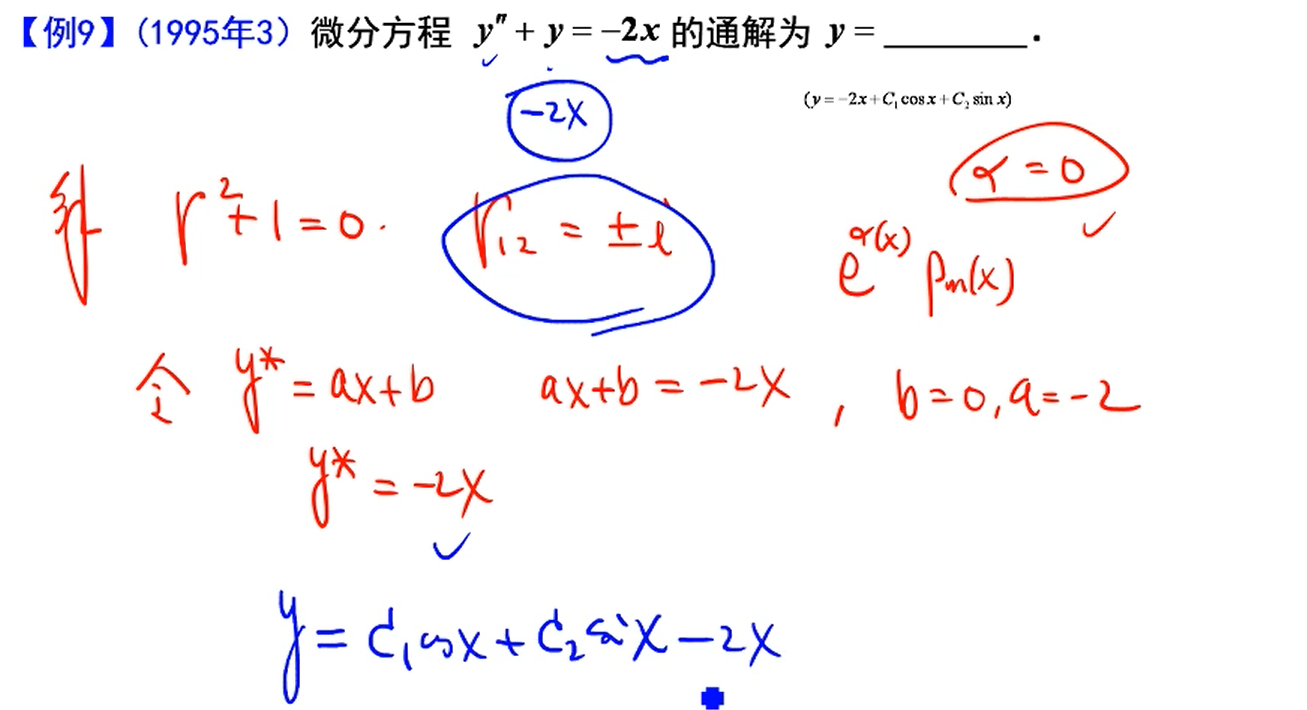 【例9】(1995年3) 微分方程 y″ + y = −2x 的通解为 y = ________ .
(y = −2x + C₁ cos x + C₂ sin x)
−2x
α = 0
解 r² + 1 = 0. r₁₂ = ±i
e^{α(x)} Pm(x)
令 y* = ax+b ax+b = −2x , b = 0, a = −2
y* = −2x
y = C₁ cos x + C₂ sin x − 2x